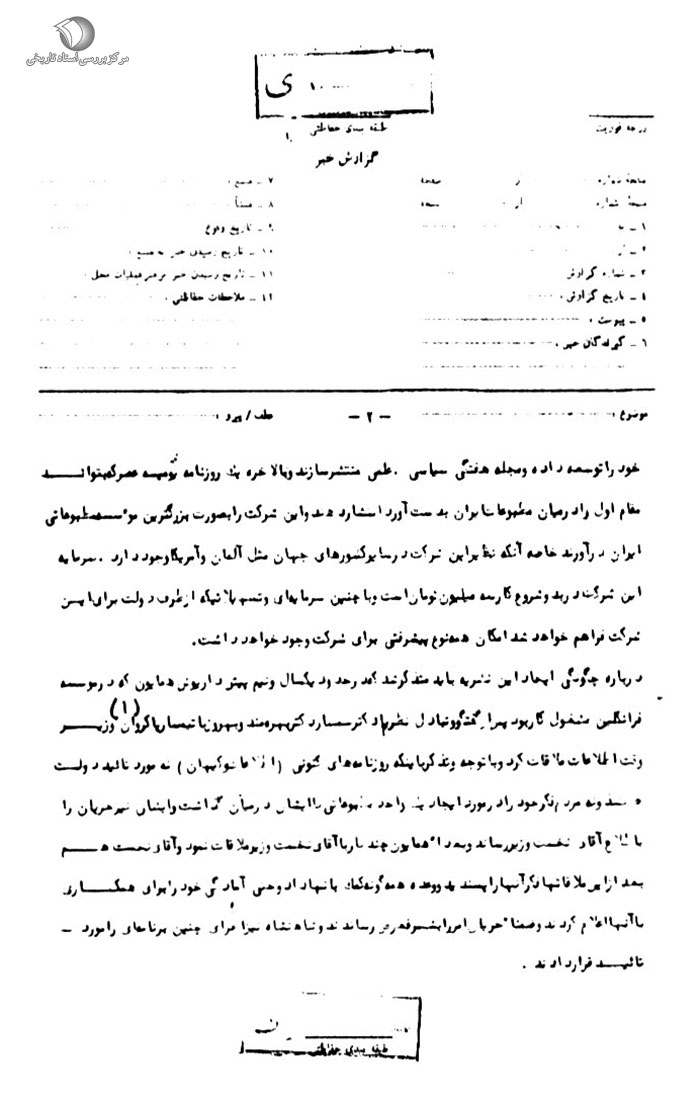 مرکز بررسی اسناد تاریخی
ی
طبقه بندی حفاظتی
درجه فوریت
گزارش خبر
صفحه
۷ ـ منبع
نسخه شماره از نسخه
۸ ـ منشأ
۹ ـ تاریخ وقوع
۱۰ ـ تاریخ رسیدن خبر به منبع
۳ ـ شماره گزارش
۱۱ ـ تاریخ رسیدن خبر برهبر عملیات محل
۴ ـ تاریخ گزارش
۱۲ ـ ملاحظات حفاظتی
۵ ـ پیوست
۶ ـ گیرندگان خبر
موضوع
ـ ۲ ـ
عطف / پیرو
خود را توسعه داده ومجله هفتگی سیاسی . علمی منتشر سازند وبالاخره یک روزنامه یومیه عصر که بتوانـــد
مقام اول را در میان مطبوعات ایران بدست آورد انتشار دهند واین شرکت را بصورت بزرگترین موسسه مطبوعاتی
ایران درآورند خاصه آنکه نظایر این شرکت در سایر کشورهای جهان مثل آلمان وآمریکا وجود دارد . سرمایه
این شرکت در بدو شروع کار سه میلیون تومان است وبا چنین سرمایه‌ای وتسهیلاتیکه از طرف دولت برای ایـــن
شرکت فراهم خواهد شد امکان همه نوع پیشرفتی برای شرکت وجود خواهد داشت.
درباره چگونگی ایجاد این نشریه باید متذکر شد که در حدود یکسال ونیم پیش داریوش همایون که در موسسه
فرانکلین مشغول کار بود پس از گفتگو وتبادل نظر با دکتر سمسار دکتر بهره مند وبهروز با تیمسار پاکروان (۱) وزیــر
وقت اطلاعات ملاقات کرد وبا توجه وتذکر باینکه روزنامه‌های کنونی (اطلاعات وکیهان) نه مورد تائید دولت
هستند ونه مردم فکر خود را در مورد ایجاد یک واحد مطبوعاتی با ایشان در میان گذاشت وایشان نیز جریان را
با اطلاع آقای نخست وزیر رساند وبعدا همایون چند بار با آقای نخست وزیر ملاقات نمود وآقای نخست هـــم
بعد از این ملاقاتها فکر آنها را پسندید ووعده همه گونه کمک بآنها داد وحتی آمادگی خود را برای همکـــاری
با آنها اعلام کردند وضمنا جریان امر را بشرفعرض رساندند وشاهنشاه نیز اجرای چنین برنامه‌ای را مورد ـ
تائیـــد قرار دادند .
طبقه بندی حفاظتی